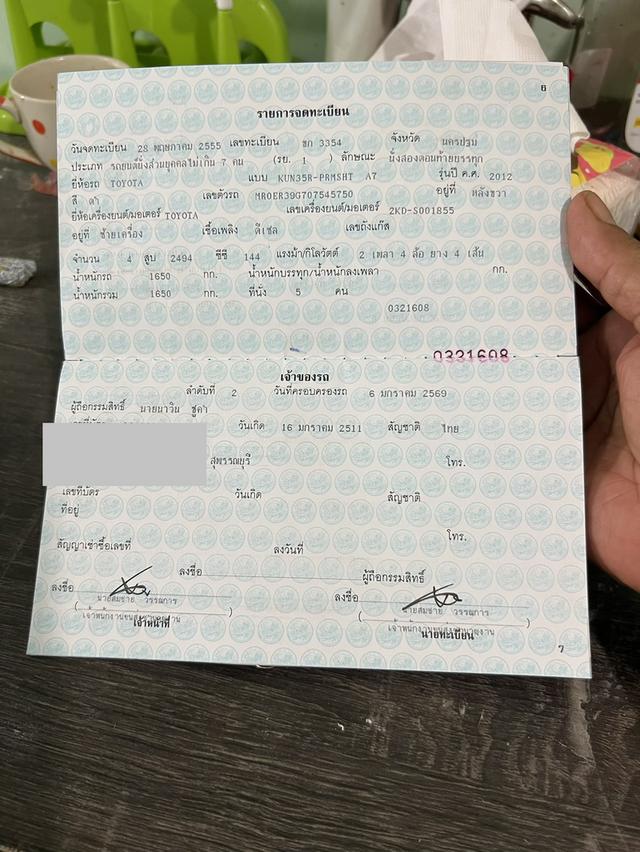 6
รายการจดทะเบียน
วันจดทะเบียน 28 พฤษภาคม 2555 เลขทะเบียน ขก 3354 จังหวัด นครปฐม
ประเภท รถยนต์นั่งส่วนบุคคลไม่เกิน 7 คน (รย. 1 ) ลักษณะ นั่งสองตอนท้ายบรรทุก
ยี่ห้อรถ TOYOTA แบบ KUN35R-PRMSHT A7 รุ่นปี ค.ศ. 2012
สี ดำ เลขตัวรถ MR0ER39G707545750 อยู่ที่ หลังขวา
ยี่ห้อเครื่องยนต์/มอเตอร์ TOYOTA เลขเครื่องยนต์/มอเตอร์ 2KD-S001855
อยู่ที่ ซ้ายเครื่อง เชื้อเพลิง ดีเซล เลขถังแก๊ส
จำนวน 4 สูบ 2494 ซีซี 144 แรงม้า/กิโลวัตต์ 2 เพลา 4 ล้อ ยาง 4 เส้น
น้ำหนักรถ 1650 กก. น้ำหนักบรรทุก/น้ำหนักลงเพลา กก.
น้ำหนักรวม 1650 กก. ที่นั่ง 5 คน
0321608
0321608
เจ้าของรถ
ลำดับที่ 2 วันที่ครอบครองรถ 6 มกราคม 2569
ผู้ถือกรรมสิทธิ์ นายนาวิน ชูคำ
วันเกิด 16 มกราคม 2511 สัญชาติ ไทย
สุพรรณบุรี โทร.
เลขที่บัตร วันเกิด สัญชาติ
ที่อยู่
โทร.
สัญญาเช่าซื้อเลขที่ ลงวันที่
ลงชื่อ ผู้ถือกรรมสิทธิ์
ลงชื่อ ลงชื่อ
( นายสมชาย วรรณการ ) ( นายสมชาย วรรณการ )
เจ้าพนักงานขนส่งชำนาญงาน เจ้าพนักงานขนส่งชำนาญงาน
เจ้าหน้าที่ นายทะเบียน
7